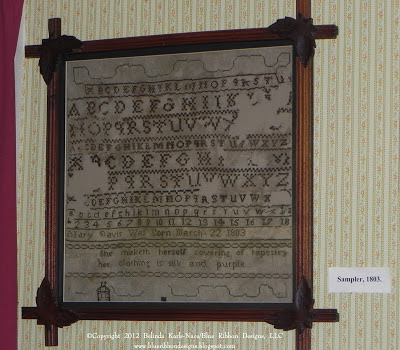 ABCDEFGHIKLMNOPQRST
ABCDEFGHIK
NOPQRSTUVW
ABCDEFGHIKLMNOPQRSTUVWXYZ
CDEFGHI
PQRSTUVWXYZ
ABCDEFGHIKLMNOPQRSTUVWXYZ
abcdefghiklmnopqrstuvwxyz
2 3 4 5 6 7 8 9 10 11 12 13 14 15 16 17 18
Mary Davis Was Born March 22 1803
She maketh herself covering of tapestry
her clothing is silk and purple
Sampler, 1803.
©Copyright 2012 Belinda Karls-Nace/Blue Ribbon Designs, LLC
www.blueribbondesigns.blogspot.com